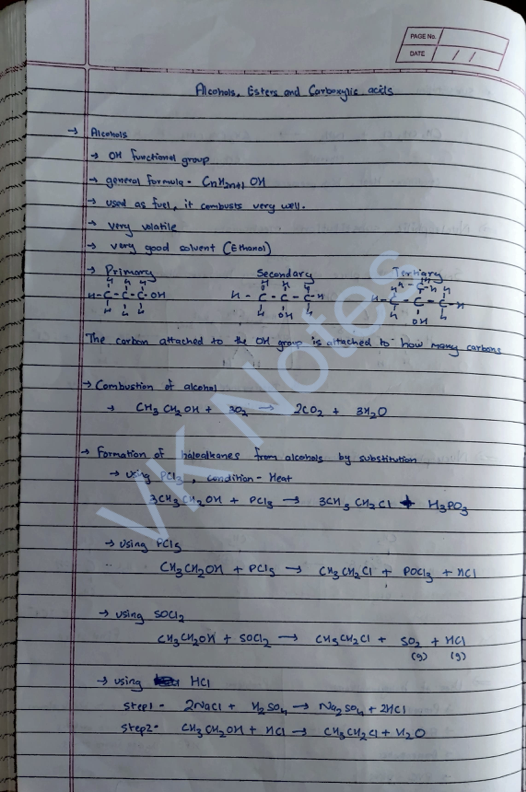 PAGE No.
DATE / /
Alcohols, Esters and Carboxylic acids
→ Alcohols
→ OH functional group
→ general formula - CnH2n+1 OH
→ used as fuel, it combusts very well.
→ very volatile
→ very good solvent (Ethanol)
→ Primary Secondary Tertiary
H H H H H H H H H
H - C - C - C - OH H - C - C - C - H H - C - C - C - H
H H H H OH H H OH H
The carbon attached to the OH group is attached to how many carbons
→ Combustion of alcohol
→ CH3CH2OH + 3O2 → 2CO2 + 3H2O
→ Formation of haloalkanes from alcohols by substitution
→ using PCl3, condition - Heat
3CH3CH2OH + PCl3 → 3CH3CH2Cl + H3PO3
→ using PCl5
CH3CH2OH + PCl5 → CH3CH2Cl + POCl3 + HCl
→ using SOCl2
CH3CH2OH + SOCl2 → CH3CH2Cl + SO2 + HCl
(g) (g)
→ using HCl
step1 - 2NaCl + H2SO4 → Na2SO4 + 2HCl
step2 - CH3CH2OH + HCl → CH3CH2Cl + H2O
VK Notes